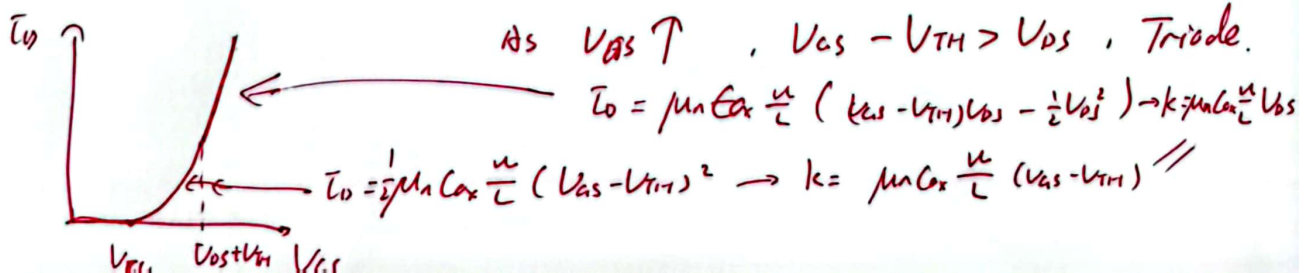 I_D
As V_GS ↑ , V_GS - V_TH > V_DS , Triode.
I_D = μ_n C_ox W/L ( (V_GS - V_TH) V_DS - 1/2 V_DS² ) → k = μ_n C_ox W/L V_DS
I_D = 1/2 μ_n C_ox W/L (V_GS - V_TH)² → k = μ_n C_ox W/L (V_GS - V_TH) //
V_TH V_DS+V_TH V_GS